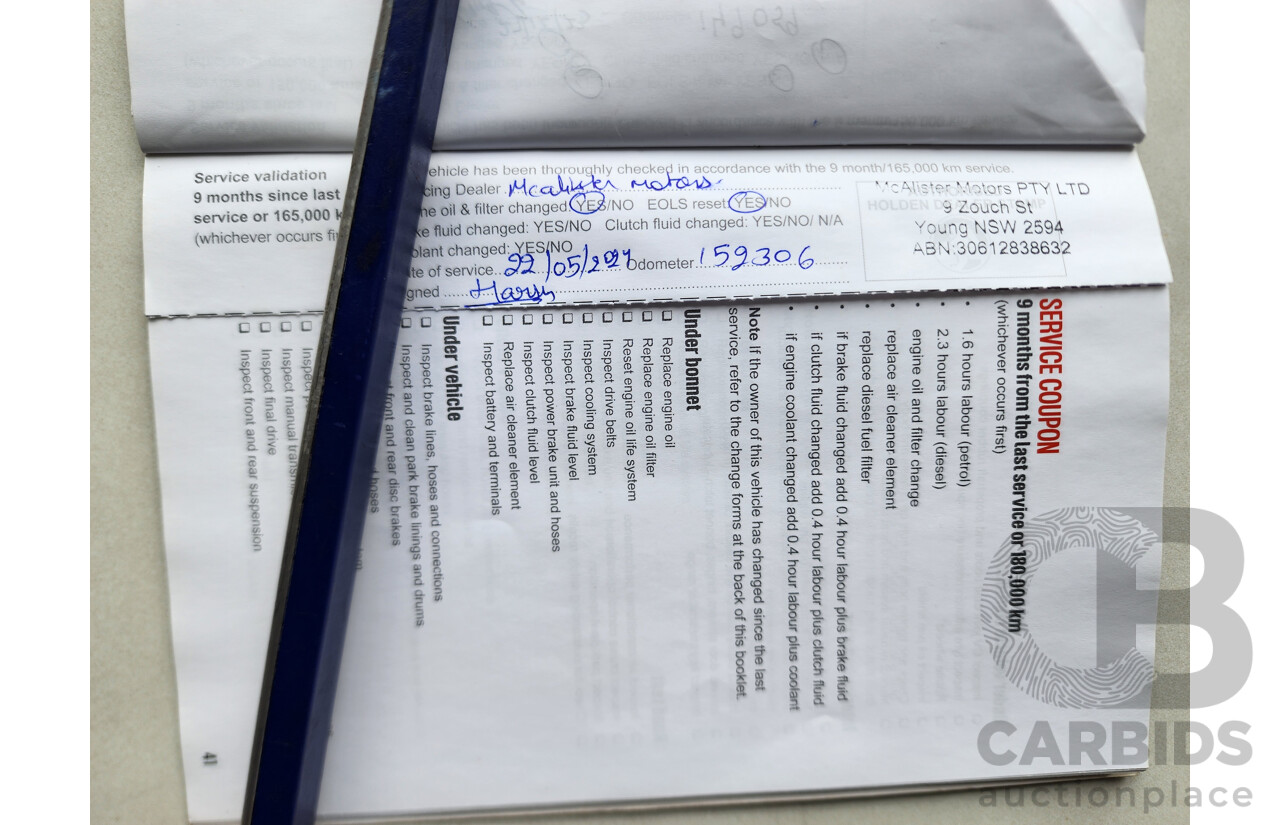 Service validation
9 months since last
service or 165,000
(whichever occurs
ehicle has been thoroughly checked in accordance with the 9 month/165,000 km service.
cing Dealer Mcalister motors.
ne oil & filter changed: YES/NO EOLS reset: YES/NO
ke fluid changed: YES/NO Clutch fluid changed: YES/NO/ N/A
olant changed: YES/NO
te of service 22/05/2024 Odometer 159306
gned
McAlister Motors PTY LTD
HOLDEN DEALER STAMP
9 Zouch St
Young NSW 2594
ABN:30612838632
SERVICE COUPON
9 months from the last service or 180,000 km
(whichever occurs first)
• 1.6 hours labour (petrol)
• 2.3 hours labour (diesel)
• engine oil and filter change
• replace air cleaner element
• replace diesel fuel filter
• if brake fluid changed add 0.4 hour labour plus brake fluid
• if clutch fluid changed add 0.4 hour labour plus clutch fluid
• if engine coolant changed add 0.4 hour labour plus coolant
Note If the owner of this vehicle has changed since the last
service, refer to the change forms at the back of this booklet.
Under bonnet
❏ Replace engine oil
❏ Replace engine oil filter
❏ Reset engine oil life system
❏ Inspect drive belts
❏ Inspect cooling system
❏ Inspect brake fluid level
❏ Inspect power brake unit and hoses
❏ Inspect clutch fluid level
❏ Replace air cleaner element
❏ Inspect battery and terminals
Under vehicle
❏ Inspect brake lines, hoses and connections
❏ Inspect and clean park brake linings and drums
front and rear disc brakes
hoses
❏ Inspect
❏ Inspect manual
❏ Inspect final drive
❏ Inspect front and rear suspension
41
CARBIDS
auctionplace